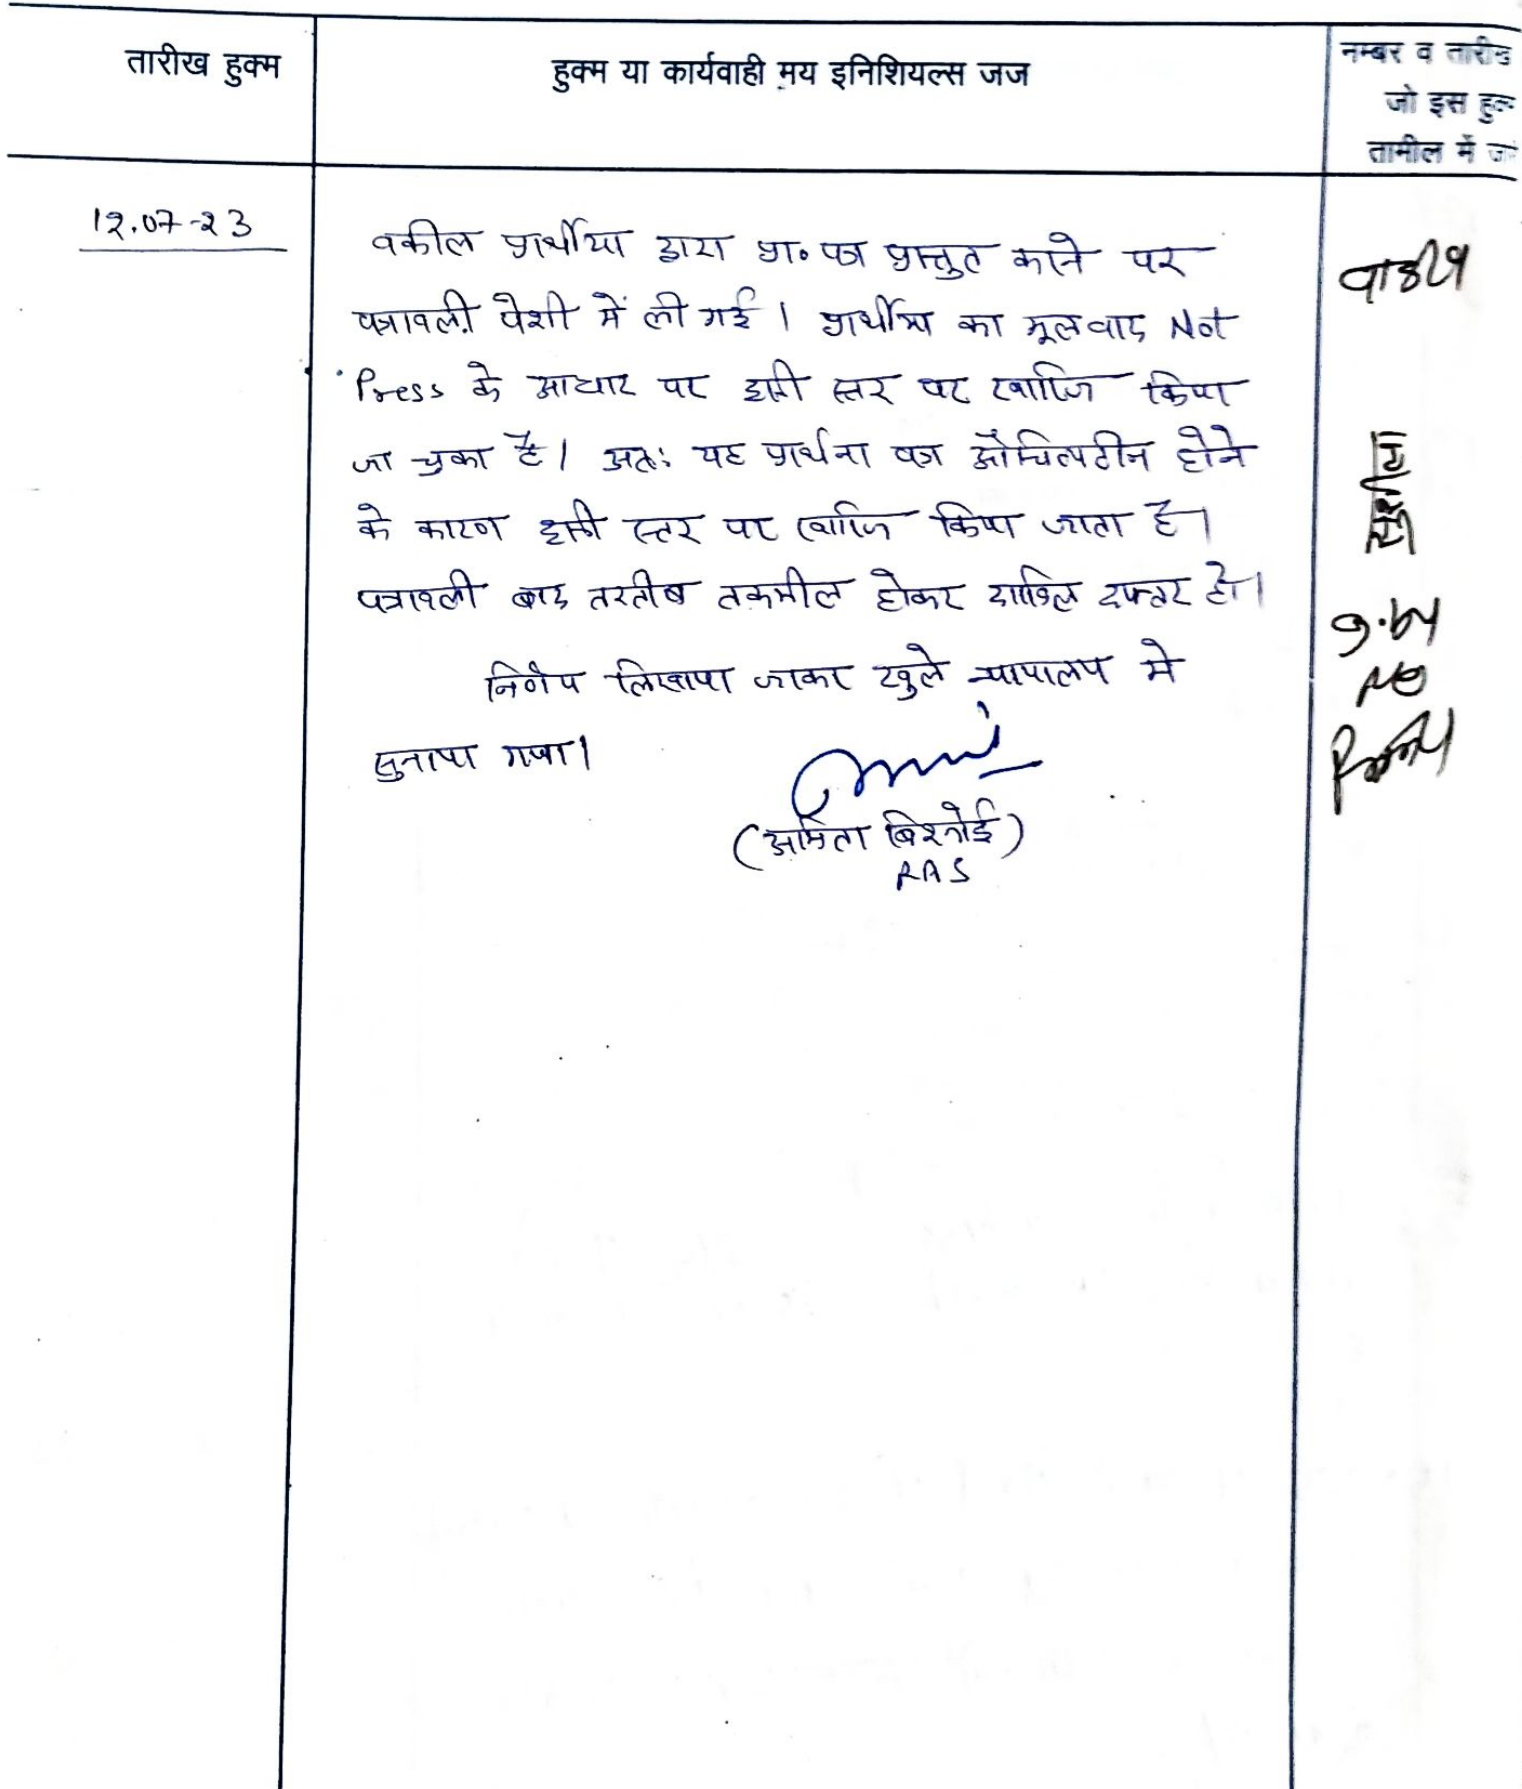 तारीख हुक्म
हुक्म या कार्यवाही मय इनिशियल्स जज
नम्बर व तारीख
जो इस हुक्म
तामील में
12.07-23
वकील प्रार्थीया द्वारा प्रा. पत्र प्रस्तुत करने पर
पत्रावली पेशी में ली गई। प्रार्थीया का मूलवाद Not
Press के आधार पर इसी स्तर पर खारिज किया
जा चुका है। अतः यह प्रार्थना पत्र औचित्यहीन होने
के कारण इसी स्तर पर खारिज किया जाता है।
पत्रावली बाद तरतीब तकमील होकर दाखिल दफ्तर हो।
निर्णय लिखाया जाकर खुले न्यायालय में
सुनाया गया।
(अमिता बिश्नोई)
RAS